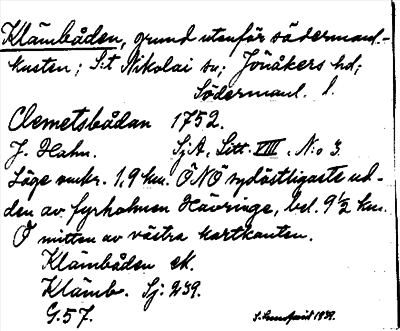 Klämbåden, grund utenför södermanl-
kusten; S:t Nikolai sn; Jönåkers hd;
Södermanl. l.
Clemetsbådan 1752.
J. Hahn. SjA, Litt. VIII, N:o 3.
Läge omkr. 1,9 km. ÖNÖ sydöstligaste ud-
den av fyrholmen Hävringe, bel. 9½ km.
Ö mitten av västra kartkanten.
Klämbåden ek.
Klämb. Sj: 239.
G.57.
1939.